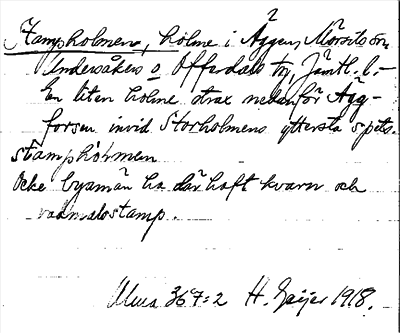 Stampholmen, holme i Äggen, Mörsils sn
Undersåkers o. Offerdals tg, Jämtl. l.
En liten holme strax nedanför Ägg-
forsen invid Storholmens yttersta spets.
stamphormen
Ocke byamän ha där haft kvarn och
vadmalsstamp.
367:2 H. Geijer 1918.